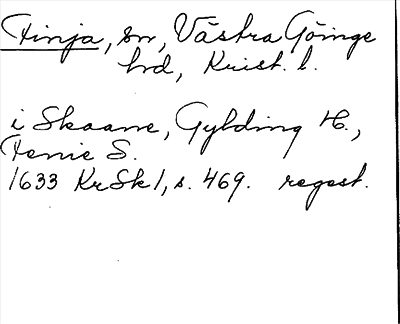 Finja, sn, Västra Göinge
hrd, Krist. l.
i Skaane, Gylding H.,
Fenie S.
1633 KrSk1, s. 469. regest.